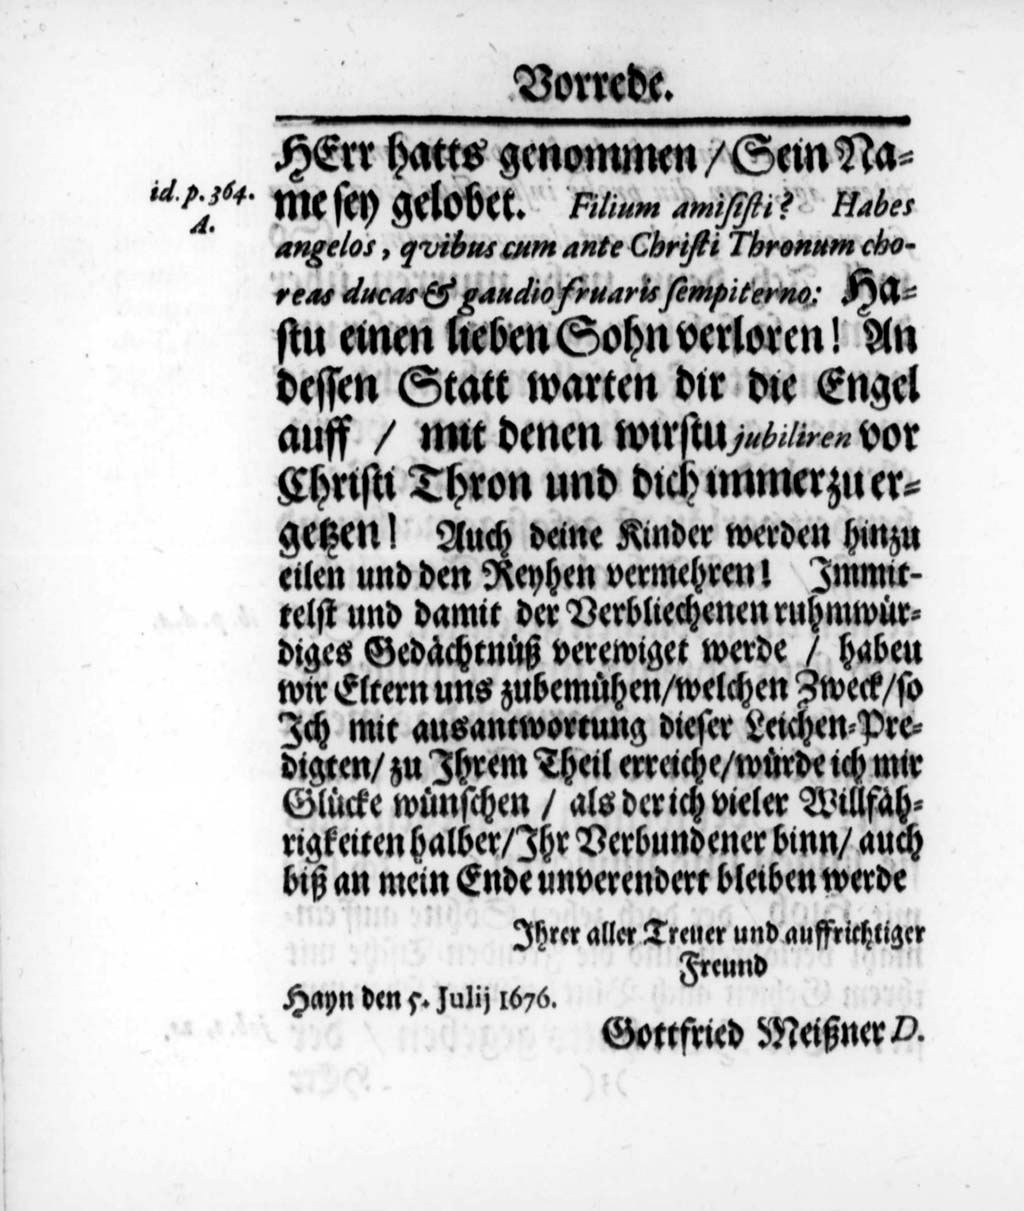 Vorrede.
HErr hatts genommen / Sein Na-
id. p. 364.
A.
me sey gelobet. Filium amisisti? Habes
angelos, qvibus cum ante Christi Thronum cho-
reas ducas & gaudio fruaris sempiterno: Ha-
stu einen lieben Sohn verloren! An
dessen Statt warten dir die Engel
auff / mit denen wirstu jubiliren vor
Christi Thron und dich immerzu er-
getzen! Auch deine Kinder werden hinzu
eilen und den Reyhen vermehren! Immit-
telst und damit der Verbliechenen ruhmwür-
diges Gedächtnüß verewiget werde / haben
wir Eltern uns zubemühen/welchen Zweck/so
Ich mit ausantwortung dieser Leichen-Pre-
digten/ zu Ihrem Theil erreiche/würde ich mir
Glücke wünschen / als der ich vieler Willfäh-
rigkeiten halber/Ihr Verbundener binn/ auch
biß an mein Ende unverendert bleiben werde
Ihrer aller Treuer und auffrichtiger
Freund
Hayn den 5. Julij 1676.
Gottfried Meißner D.